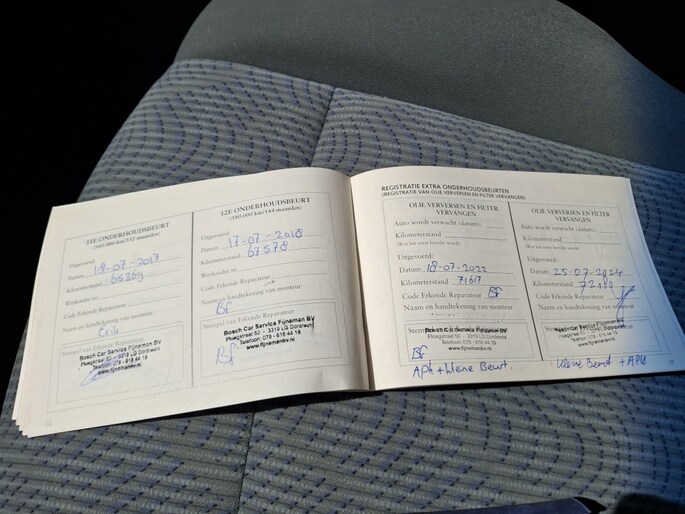 11E ONDERHOUDSBEURT
Uitgevoerd:
Datum 18-07-2017
Kilometerstand 66369
Werkorder nr.
Code Erkende Reparateur
Naam en handtekening van monteur
Erik
Stempel van Erkende Reparateur
Bosch Car Service Fijneman BV
Ploegstraat 50 - 3319 LG Dordrecht
Telefoon: 078 - 616 44 18
www.fijnemanbv.nl
12E ONDERHOUDSBEURT
(180.000 km/144 maanden)
Uitgevoerd:
Datum 17-07-2018
Kilometerstand 67.578
Werkorder nr.
Code Erkende Reparateur
Naam en handtekening van monteur
Bf
Stempel van Erkende Reparateur
Bosch Car Service Fijneman BV
Ploegstraat 50 - 3319 LG Dordrecht
Telefoon: 078 - 616 44 18
www.fijnemanbv.nl
Bf
REGISTRATIE EXTRA ONDERHOUDSBEURTEN
(REGISTRATIE VAN OLIE VERVERSEN EN FILTER VERVANGEN)
OLIE VERVERSEN EN FILTER
VERVANGEN
Auto wordt verwacht (datum):
Kilometerstand
(Wat het eerst bereikt wordt)
Uitgevoerd:
Datum 18-07-2022
Kilometerstand 71617
Code Erkende Reparateur Bf
Naam en handtekening van monteur
Bosch Car Service Fijneman BV
Ploegstraat 50 - 3319 LG Dordrecht
Telefoon: 078 - 616 44 18
www.fijnemanbv.nl
Bf
Apk + kleine Beurt.
OLIE VERVERSEN EN FILTER
VERVANGEN
Auto wordt verwacht (datum)
Kilometerstand
(Wat het eerst bereikt wordt)
Uitgevoerd:
Datum 25-07-2024
Kilometerstand
Code Erkende Reparateur
Naam en handtekening van monteur
Bosch Car Service Fijneman BV
Ploegstraat 50 - 3319 LG Dordrecht
Telefoon: 078 - 616 44 18
www.fijnemanbv.nl
kleine Beurt + APK